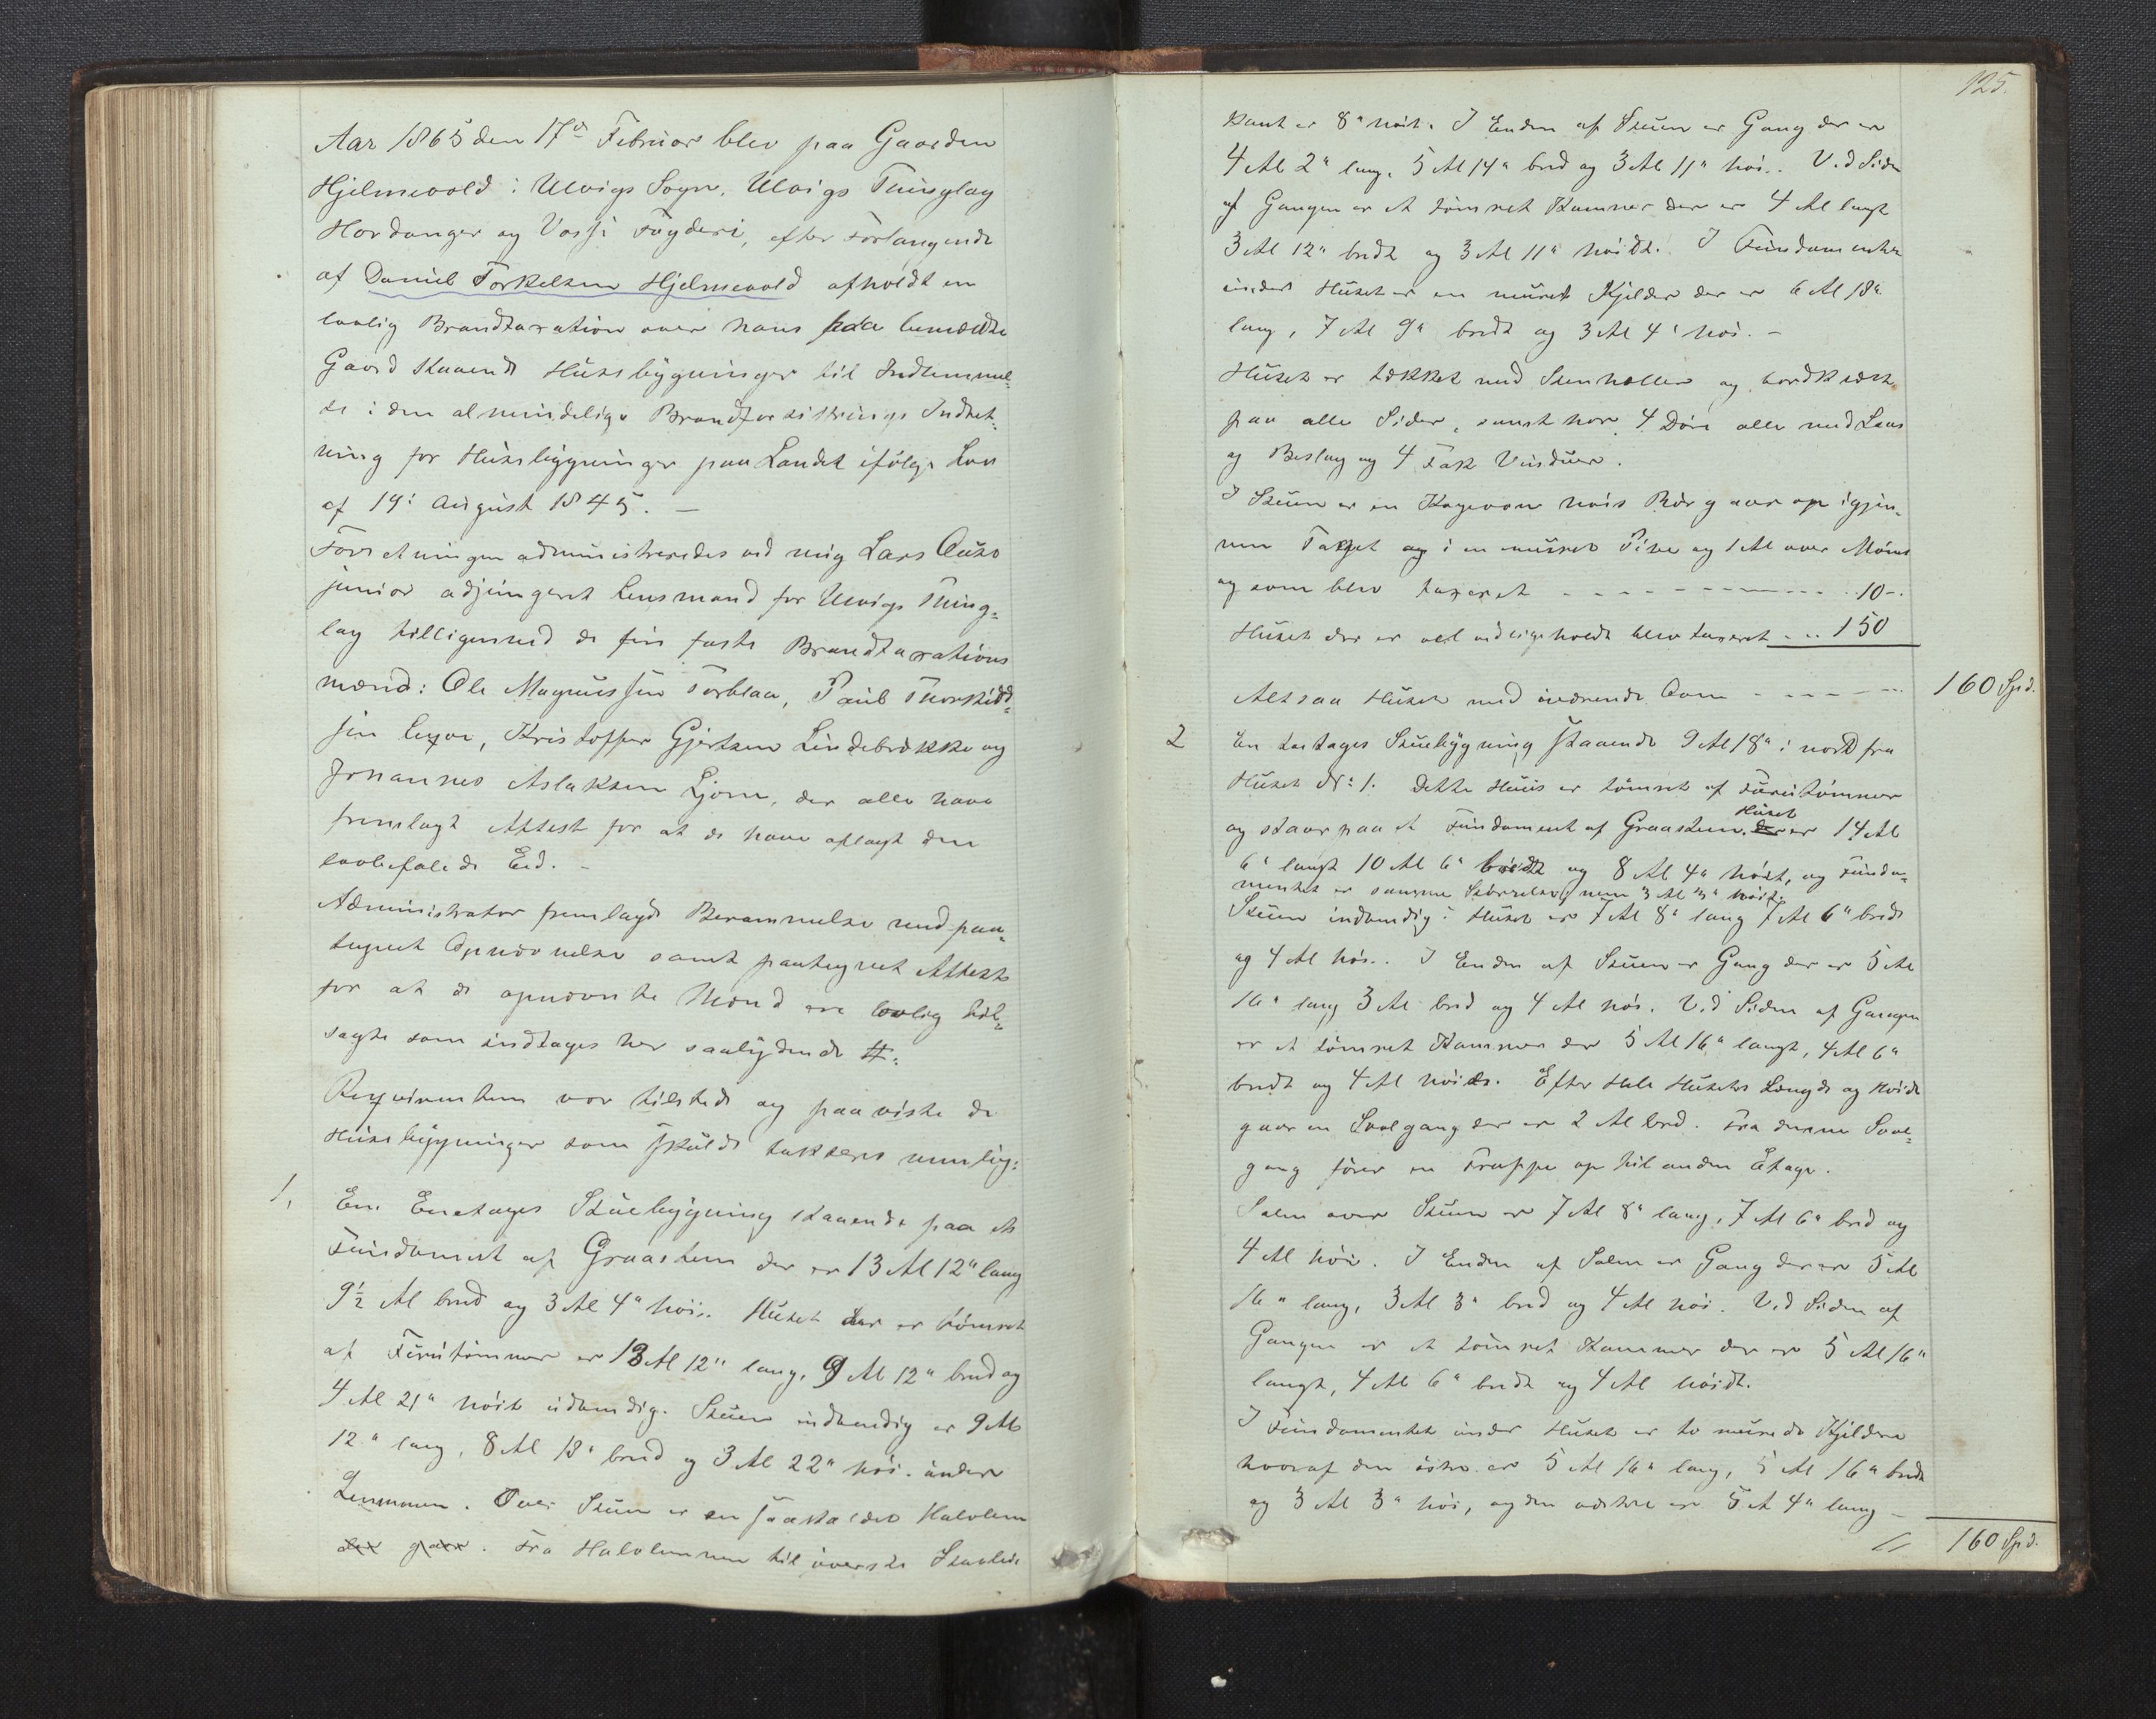 Aar 1865 den 17de Februar blev paa Gaarden
Hjelmevold i Ulvigs Sogn, Ulvigs Thinglag
Hardanger og Voss's Fogderi, efter Forlangende
af Daniel Torkelsen Hjelmevold afholdt en
lovlig Brandtaxation over hans paa bemeldte
Gaard staaende Huusbygninger til Indlemmel-
se i den almindelige Brandforsikrings Indret-
ning for Huusbygninger paa Landet ifølge Lov
af 19: August 1845. —
Forretningen administreredes ved mig Lars
junior adjungeret Lensmand for Ulvigs Thing-
lag tilligemed de fire faste Brandtaxations
mænd: Ole Magnussen Torblaa, Paul Thorkild-
sen Kristoffer Gjertsen Lindebrække og
Johannes Aslaksen Ljone, der alle have
fremlagt Attest for at de have aflagt den
lovbefalede Eed. —
Administrator fremlagde Berammelse med paa-
tegnet Opnævnelse samt paategnet Attest
for at de opnævnte Mænd ere lovlig til-
sagte som indtages her saalydende #:
Reqvirenten var tilstede og paaviste de
Huusbygninger som skulde takseres nemlig:
1, Een Eenetages Stuebygning staaende paa et
Fundament af Graasteen der er 13 Al 12" lang
9½ Al bred og 3 Al 4" høi. Huset der er tømret
af Furutømmer er 13 Al 12" lang, 9 Al 12" bred og
4 Al 21" høit udvendig. Stuen indvendig er 9 Al
12" lang, 8 Al 18" bred og 3 Al 22" høi under
Lemmen. Over Stuen er en saakaldet Halvlem
der gaar. Fra Halvlemmen til øverste
125.
kant er 8" høit. I Enden af Stuen er Gang der er
4 Al 2" lang, 5 Al 14" bred og 3 Al 11" høi. Ved Siden
af Gangen er et tømret Kammer der er 4 Al langt
3 Al 12" bredt og 3 Al 11" høidt. I Fundamentet
under Huset er en muret Kjelder der er 6 Al 18"
lang, 7 Al 9" bredt og 3 Al 4" høi. —
Huset er tækket med Steenheller og bordklædt
paa alle Sider, samt har 4 Døre alle med Laas
og Beslag og 4 Fag Vinduer.
I Stuen er en Kogeovn hvis Rør gaar op igjen-
nem Taget og i en muret Pibe og 1 Al over Mønet
og som blev taxeret - - - - - - - - - 10 -.
Huset der er vel vedligeholdt blev taxeret - .. 150
Altsaa Huset med værende Ovn - - - - - 160 Spd.
2 En toetages Stuebygning staaende 9 Al 18" i nord fra
Huset No: 1. Dette Huus er tømret af Furutømmer
og staar paa et Fundament af Graasteen. Huset der er 14 Al
6" langt 10 Al 6" bredt og 8 Al 4" høit, og Funda-
mentet er samme Størrelse, men 3 Al 3" høit.
Stuen indvendig i Huset er 7 Al 8" lang 7 Al 6" bred
og 4 Al høi. I Enden af Stuen er Gang der er 5 Al
16" lang 3 Al bred og 4 Al høi. Ved Siden af Gangen
er et tømret Kammer der 5 Al 16" langt, 4 Al 6"
bredt og 4 Al høidt. Efter Hele Husets Længde og Høide
gaar en Svalgang der er 2 Al bred. Fra denne Sval-
gang fører en Trappe op til anden Etage.
Salen over Stuen er 7 Al 8" lang, 7 Al 6" bred og
4 Al høi. I Enden af Salen er Gang der er 5 Al
16" lang, 3 Al 3" bred og 4 Al høi. Ved Siden af
Gangen er et tømret Kammer der er 5 Al 16"
langt, 4 Al 6" bredt og 4 Al høidt.
I Fundamentet under Huset er to murede Kjeldere
hvoraf den østre er 5 Al 16" lang, 5 Al 16" bred
og 3 Al 3" høi, og den vestre er 5 Al 4" lang —
160 Spd.